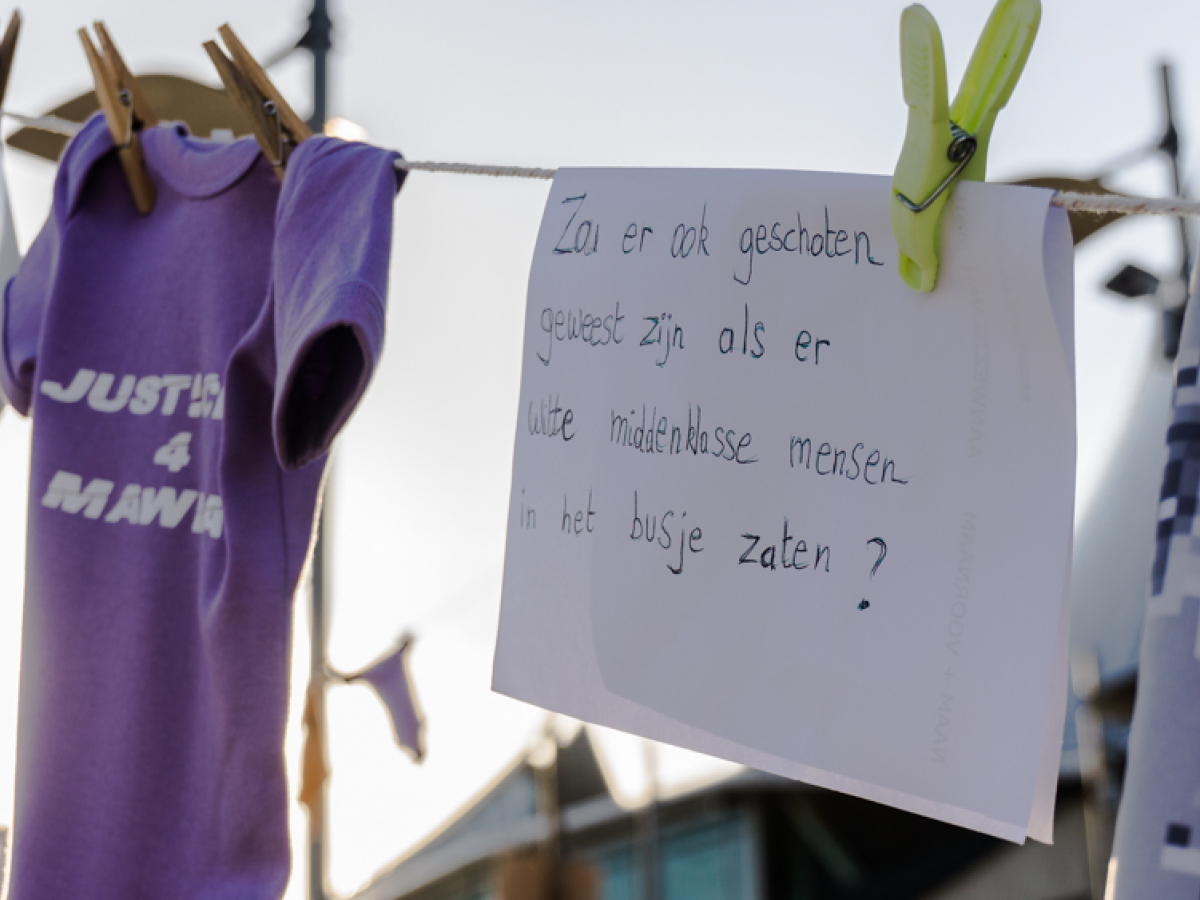 JUSTIC
4
MAWD
Zou er ook geschoten
geweest zijn als er
witte middenklasse mensen
in het busje zaten ?